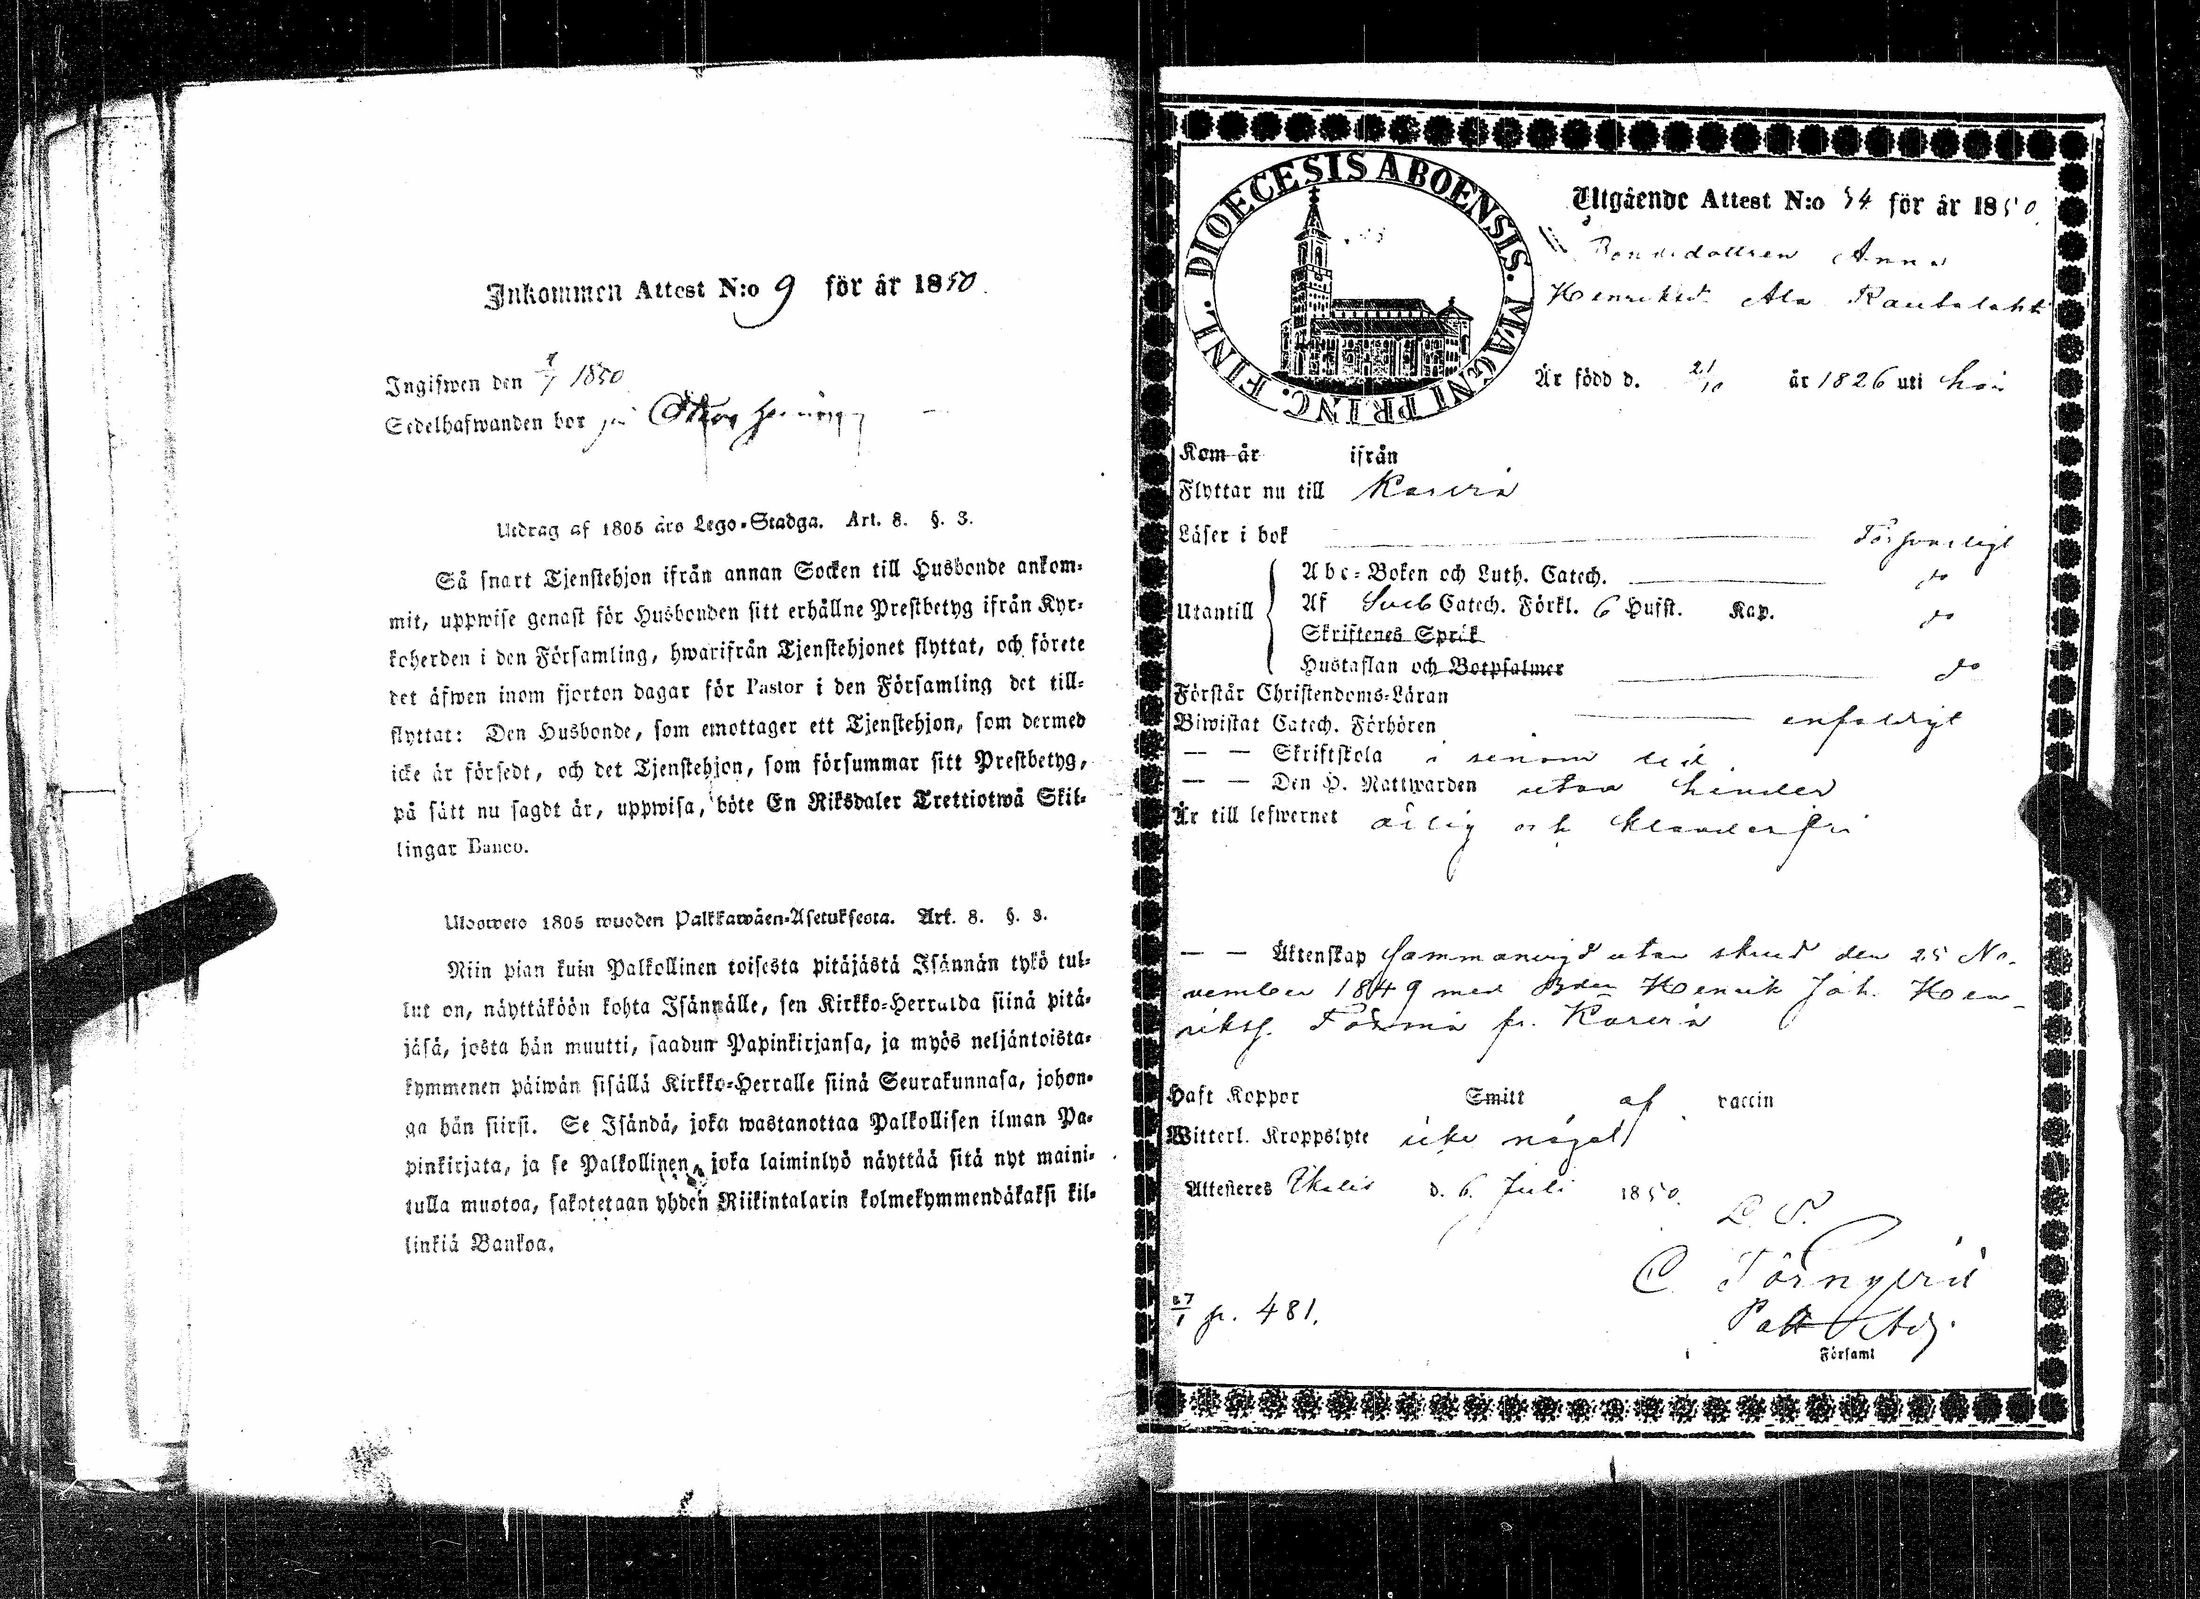 Inkommen Attest N:o 9 för år 1850.
Ingifwen den 7/7 1850
Sedelhafwanden bor på
Utdrag af 1805 års Lego-Stadga. Art. 8. §. 3.
Så snart Tjenstehjon ifrån annan Socken till Husbonde ankom-
mit, uppwise genast för Husbonden sitt erhållne Prestbetyg ifrån Kyr-
koherden i den Församling, hwarifrån Tjenstehjonet flyttat, och förete
det äfwen inom fjorton dagar för Pastor i den Församling det till-
flyttat: Den Husbonde, som emottager ett Tjenstehjon, som dermed
icke är försedt, och det Tjenstehjon, som försummar sitt Prestbetyg,
på sätt nu sagdt är, uppwisa, böte En Riksdaler Trettiotwå Skil-
lingar Banco.
Ulosweto 1805 wuoden Palkkawäen-Asetuksesta. Art. 8. §. 3.
Niin pian kuin Palkollinen toisesta pitäjästä Isännän tykö tul-
lut on, näyttäköön kohta Isännälle, sen Kirkko-Herralda siinä pitä-
jäsä, josta hän muutti, saadun Papinkirjansa, ja myös neljäntoista-
kymmenen päiwän sisällä Kirkko-Herralle siinä Seurakunnasa, johon-
ga hän siirsi. Se Isändä, joka wastanottaa Palkollisen ilman Pa-
pinkirjata, ja se Palkollinen, joka laiminlyö näyttää sitä nyt maini-
tulla muotoa, sakotetaan yhden Riikintalarin kolmekymmendäkaksi kil-
linkiä Bankoa.
DIOECESIS ABOENSIS. MAGNI PRINC. FINL.
Utgående Attest N:o 54 för år 1850.
Bondedottren Anna
Henriksd. Ala Rautalaht
Är född d. 21/10 år 1826 uti här
Kom år ifrån
Flyttar nu till Karvia
Läser i bok Försvarligt
Utantill
Abc-Boken och Luth. Catech. do
Af Sveb Catech. Förkl. 6 Hufst. Kap. do
Skriftenes Språk
Hustaflan och Botpsalmer do
Förstår Christendoms-Läran
Biwistat Catech. Förhören enfaldigt
— — Skriftskola i senom tid
— — Den H. Nattwarden utan hinder
Är till lefwernet ärlig och klanderfri
— — Äktenskap Sammanvigd utan skrud den 25 No-
vember 1849 med Bdn Henrik Joh. Hen-
riksf. fr. Karvia
Haft Koppor Smitt af vaccin
Witterl. Kroppslyte icke något
Attesteres Ikalis d. 6 Juli 1850.
L. S.
C. Törnqvist
Past Adj.
Församl
p. 481.